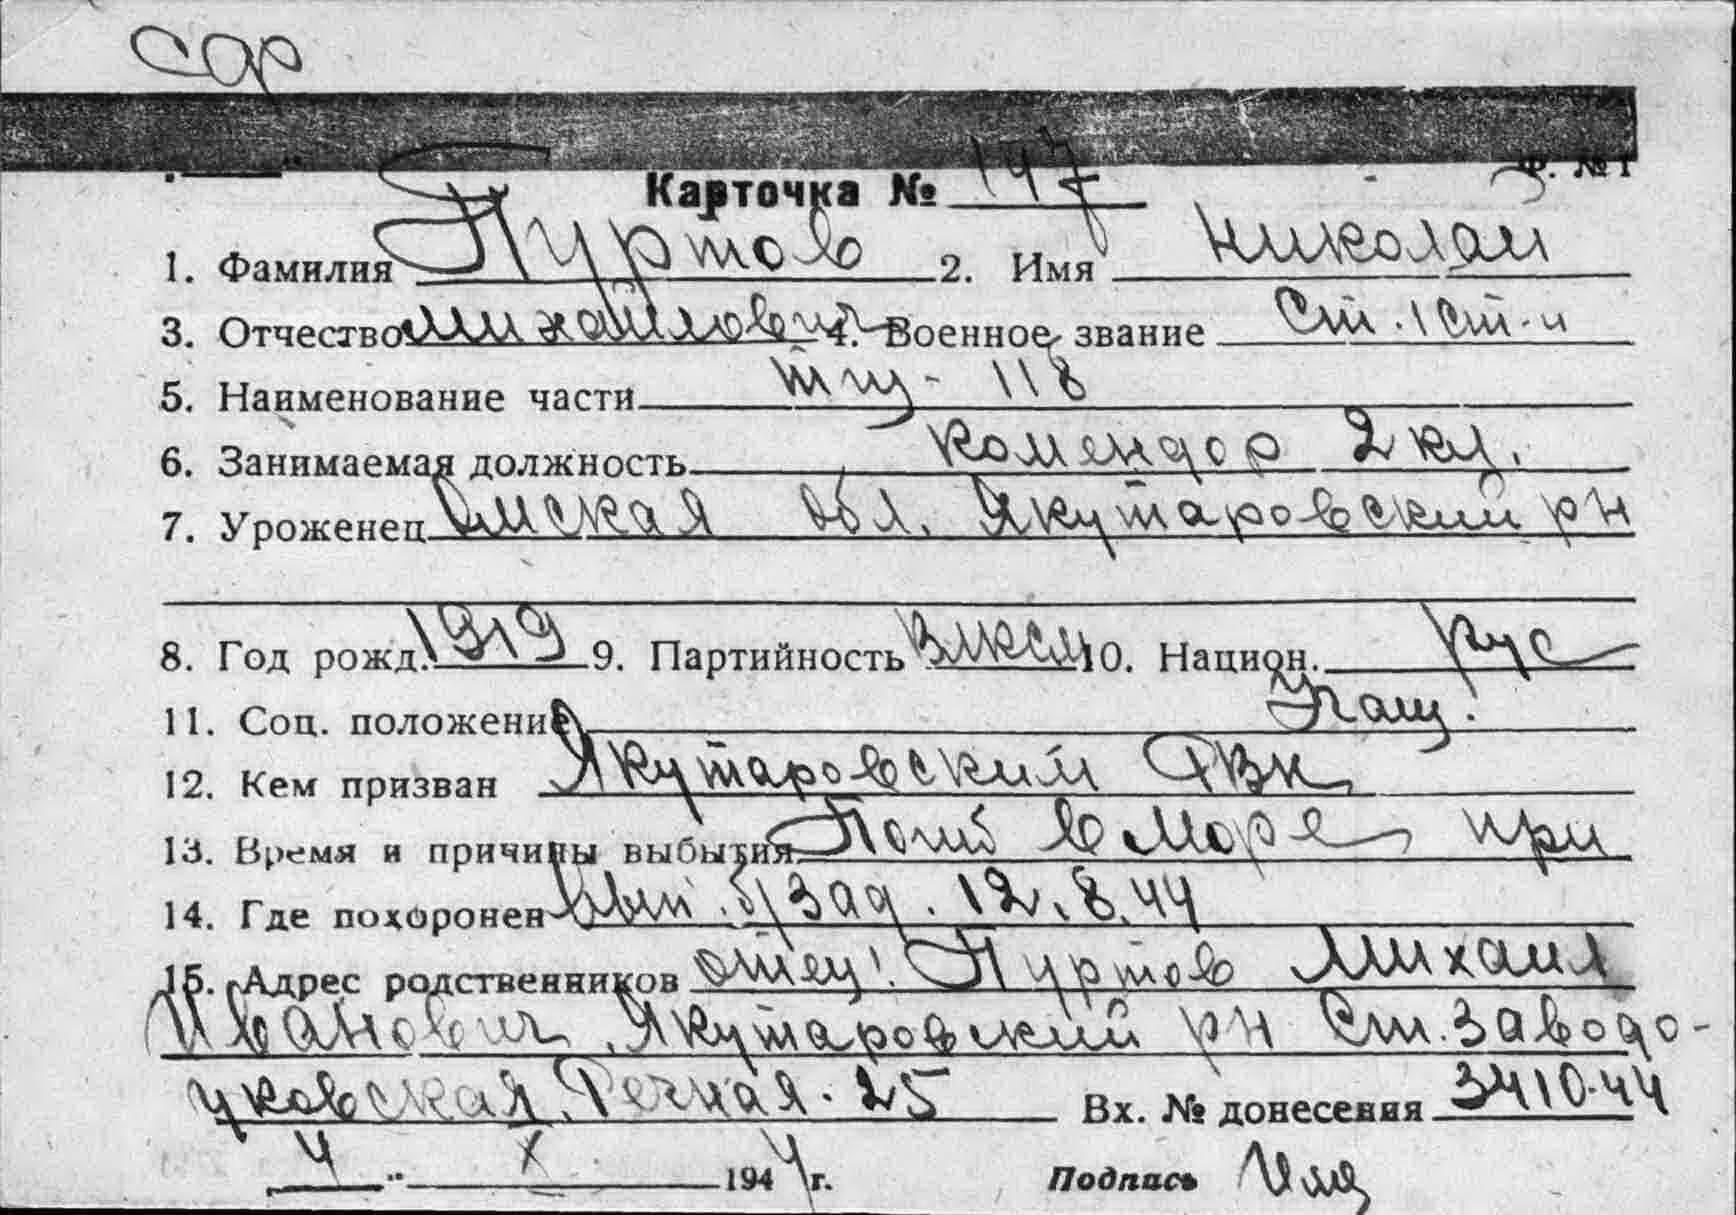 Ф. № 1
Карточка № 147
1. Фамилия Пуртов 2. Имя Николай
3. Отчество Михайлович 4. Военное звание Ст. 1 ст-и
5. Наименование части тщ - 118
6. Занимаемая должность комендор 2 кл.
7. Уроженец Омская обл. Якутаровский рн
8. Год рожд. 1919 9. Партийность ВЛКСМ 10. Национ. рус
11. Соц. положение
12. Кем призван Якутаровский РВК
13. Время и причины выбытия Погиб в море, при
14. Где похоронен вып. б/зад. 12.8.44
15. Адрес родственников отец: Пуртов Михаил
Иванович, Якутаровский рн Ст. Заводо-
уковская, Речная. 25 Вх. № донесения 3410.44
4 " X 1944 г. Подпись